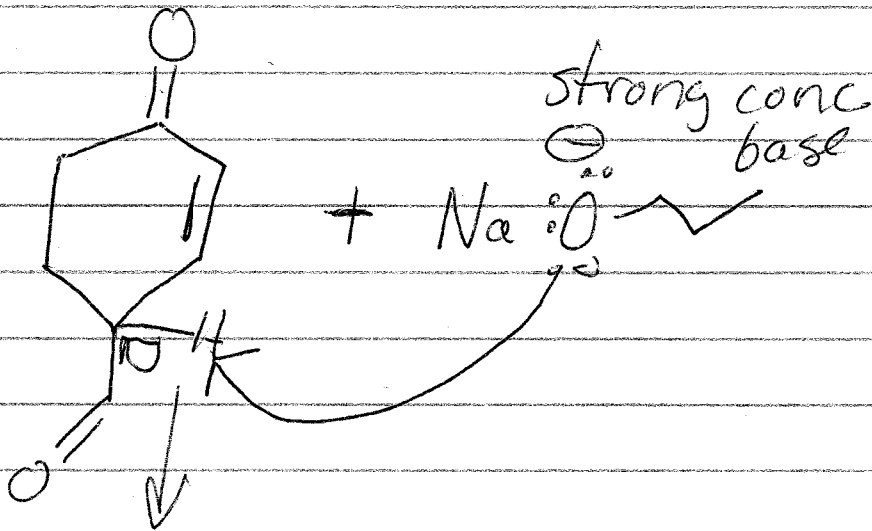 O
strong conc
base
⊖
+ Na :Ö:
H
O